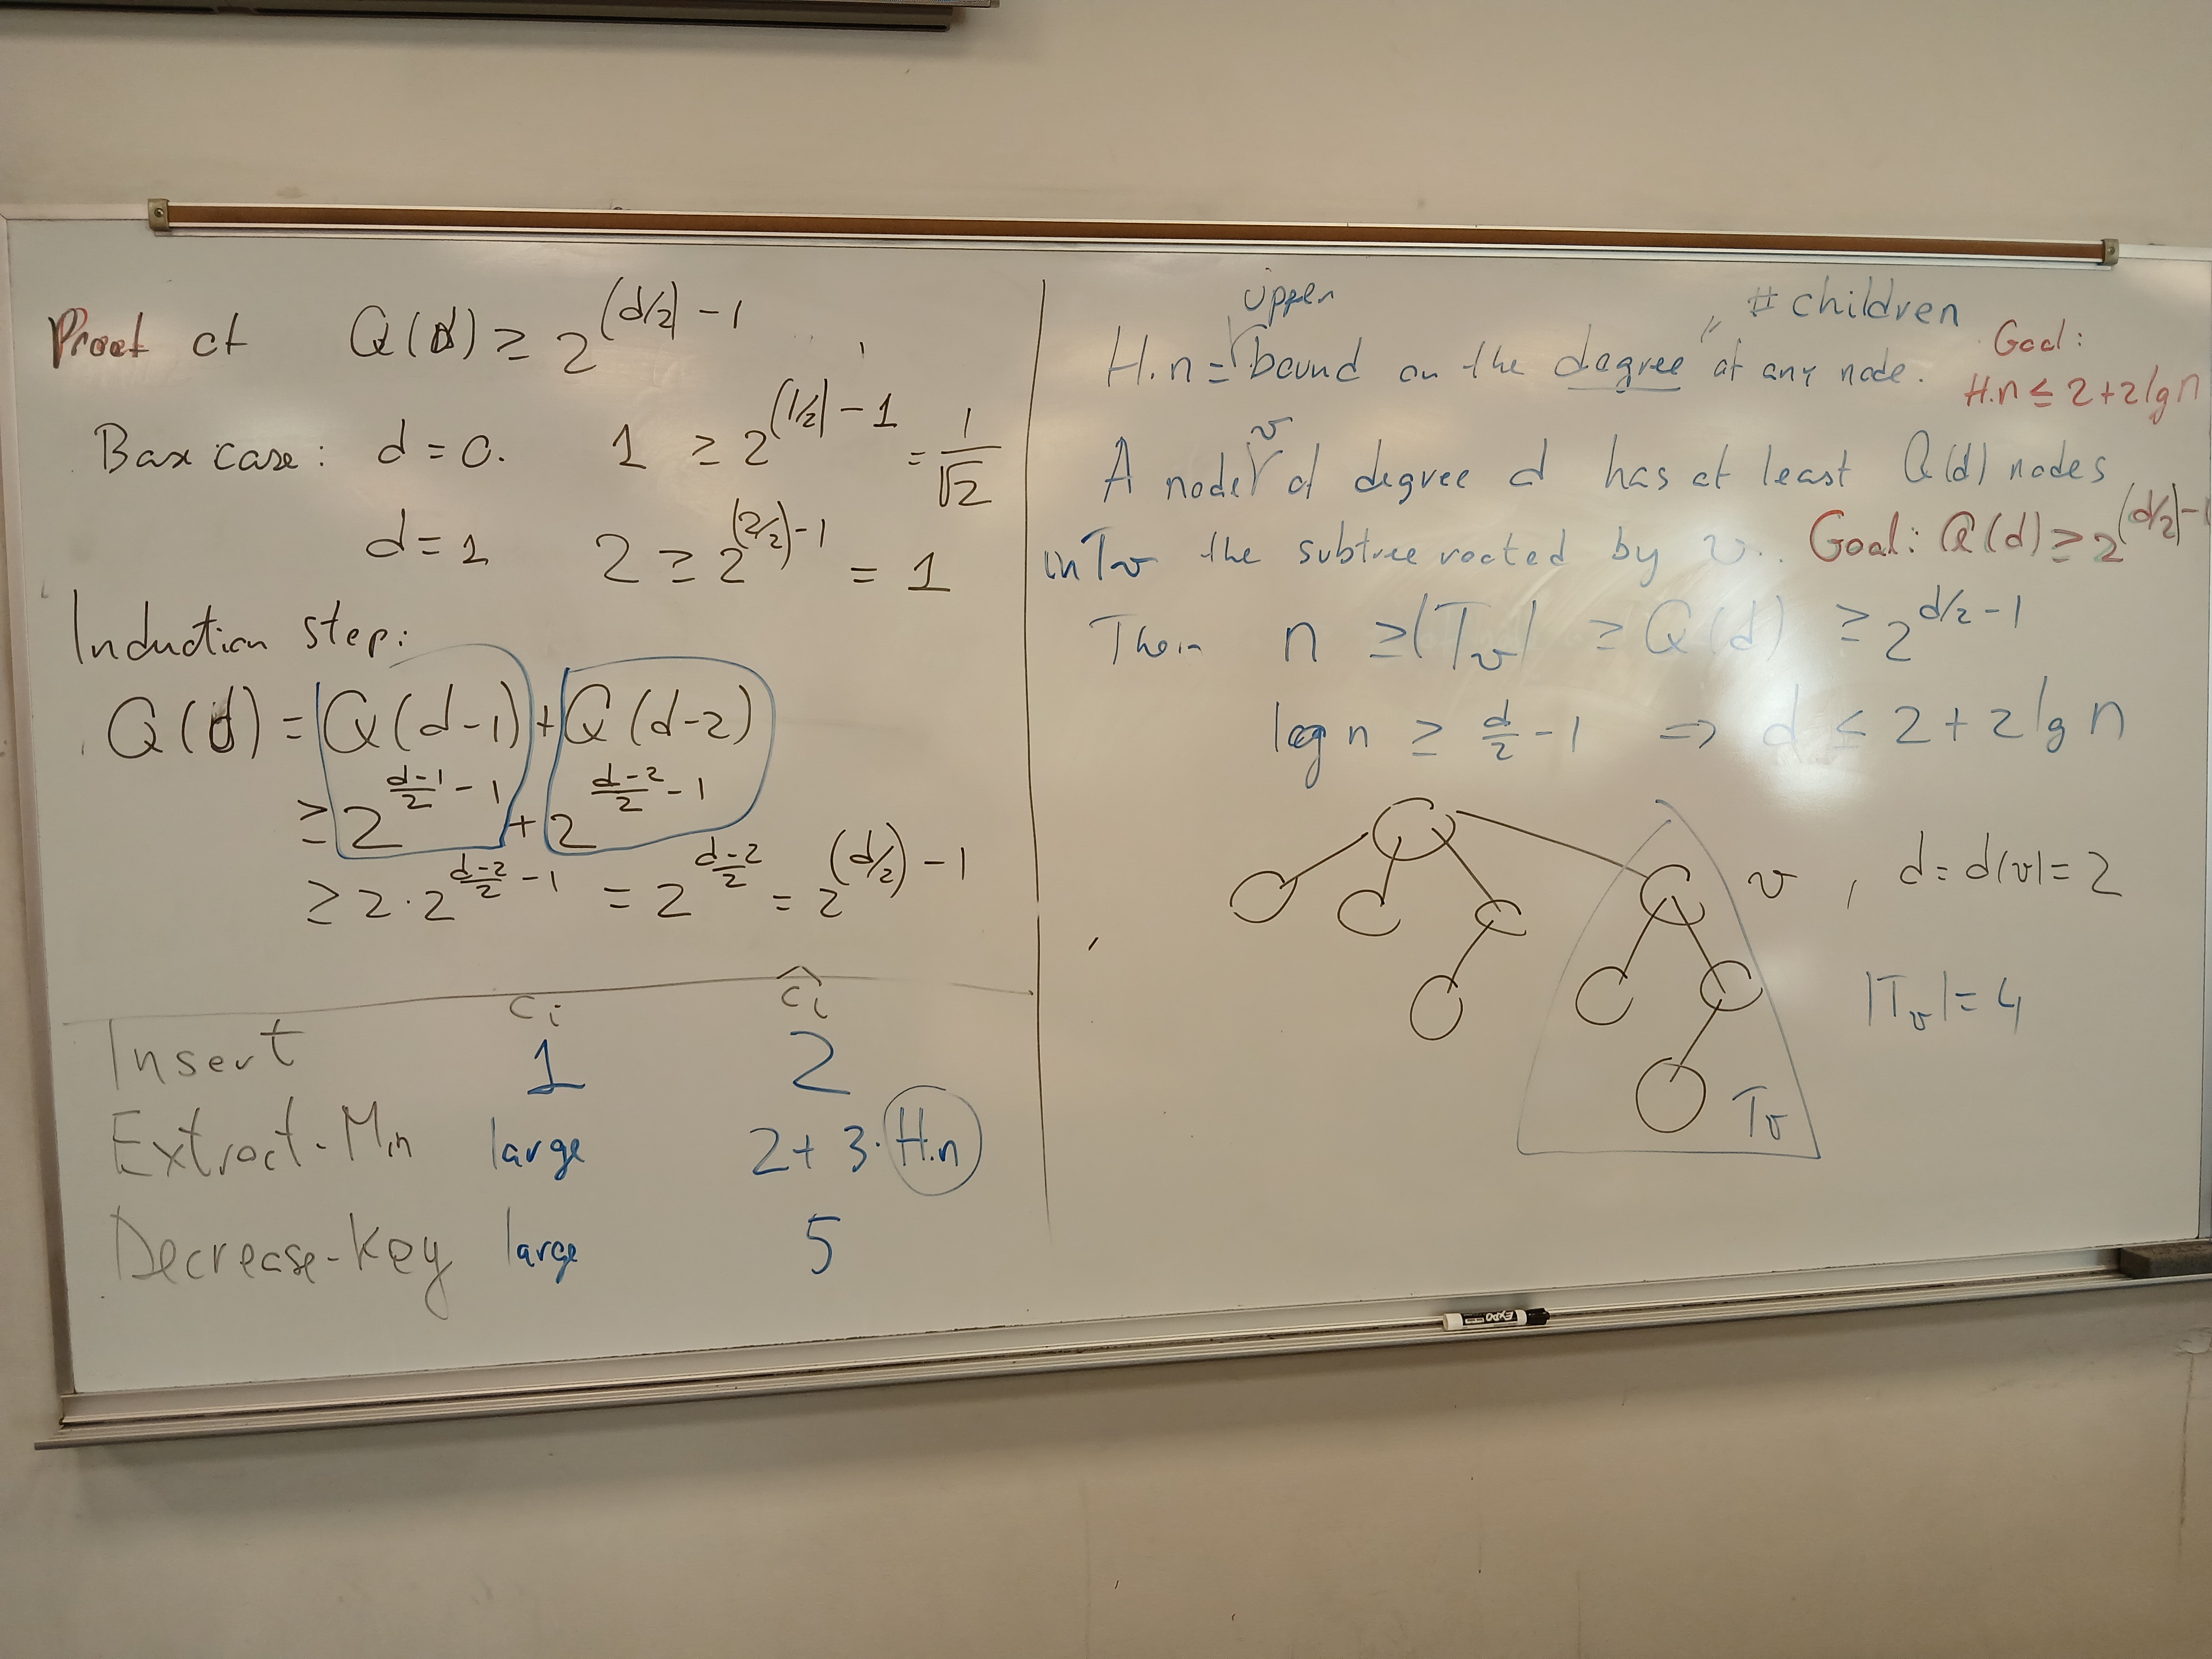 Proof of Q(d) ≥ 2^((d/2) - 1)
Base case: d = 0. 1 ≥ 2^((1/2) - 1) = 1/√2
d = 1 2 ≥ 2^((2/2) - 1) = 1
Induction step:
Q(d) = Q(d-1) + Q(d-2)
≥ 2^((d-1)/2 - 1) + 2^((d-2)/2 - 1)
≥ 2 · 2^((d-2)/2 - 1) = 2^((d-2)/2) = 2^((d/2) - 1)
c_i ĉ_i
Insert 1 2
Extract-Min large 2 + 3 · H.n
Decrease-Key large 5
upper # children
H.n = bound on the degree of any node.
Goal:
H.n ≤ 2 + 2 lg n
v
A node of degree d has at least Q(d) nodes
in Tv the subtree rooted by v. Goal: Q(d) ≥ 2^((d/2) - 1)
Then n ≥ |Tv| ≥ Q(d) ≥ 2^(d/2 - 1)
log n ≥ d/2 - 1 ⇒ d ≤ 2 + 2 lg n
v , d = d(v) = 2
|Tv| = 4
Tv
EXPO